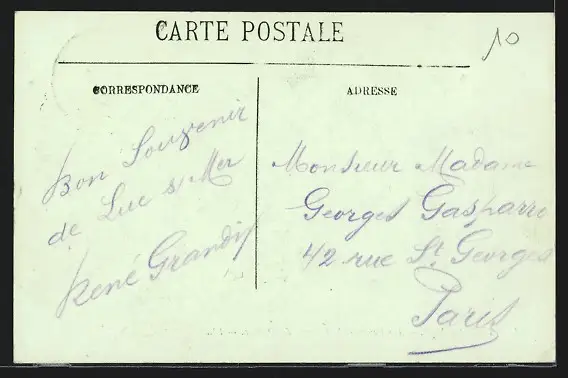 CARTE POSTALE
10
CORRESPONDANCE
ADRESSE
Bon Souvenir
de Luc s/ Mer
René Grandif
Monsieur Madame
Georges Gasparro
42 rue St Georges
Paris